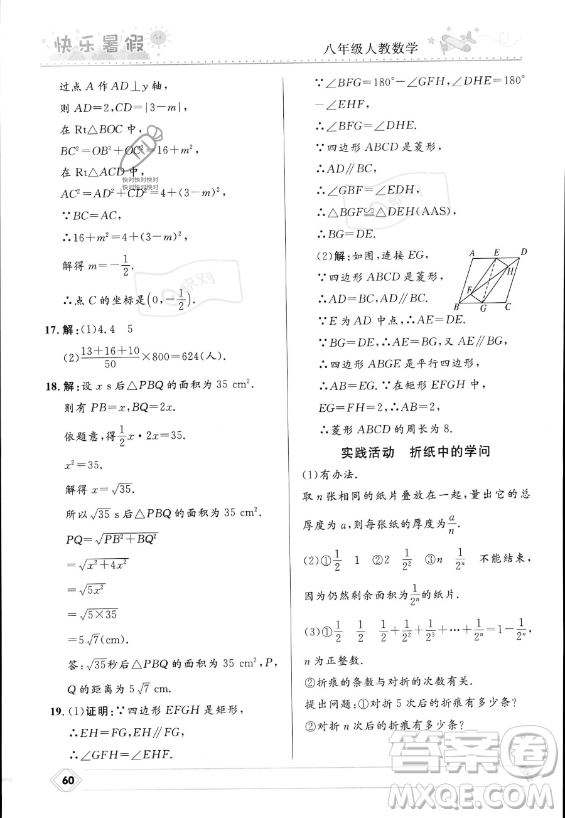 快乐暑假
八年级人教数学
过点 A 作 AD⊥y 轴,
则 AD=2,CD=|3-m|,
在 Rt△BOC 中,
BC²=OB²+OC²=16+m²,
在 Rt△ACD 中,
AC²=AD²+CD²=4+(3-m)²,
∵BC=AC,
∴16+m²=4+(3-m)²,
解得 m=-1/2.
∴点 C 的坐标是(0,-1/2).
17.解:(1)4.4 5
(2)(13+16+10)/50×800=624(人).
18.解:设 x s 后△PBQ 的面积为 35 cm².
则有 PB=x,BQ=2x.
依题意,得1/2x·2x=35.
x²=35.
解得 x=√35.
所以√35 s后△PBQ 的面积为 35 cm².
PQ=√(PB²+BQ²)
=√(x²+4x²)
=√(5x²)
=√(5×35)
=5√7(cm).
答:√35秒后△PBQ 的面积为 35 cm²,P,
Q 的距离为 5√7 cm.
19.(1)证明:∵四边形 EFGH 是矩形,
∴EH=FG,EH∥FG,
∴∠GFH=∠EHF.
∵∠BFG=180°-∠GFH,∠DHE=180°
-∠EHF,
∴∠BFG=∠DHE.
∵四边形 ABCD 是菱形,
∴AD∥BC,
∴∠GBF=∠EDH,
∴△BGF≌△DEH(AAS),
∴BG=DE.
(2)解:如图,连接 EG,
∵四边形 ABCD 是菱形,
∴AD=BC,AD∥BC.
∵E 为 AD 中点,∴AE=DE.
∵BG=DE,∴AE=BG,AE∥BG,
∴四边形 ABGE 是平行四边形,
∴AB=EG.∵在矩形 EFGH 中,
EG=FH=2,∴AB=2,
∴菱形 ABCD 的周长为 8.
A E D
H
F
B G C
实践活动 折纸中的学问
(1)有办法.
取 n 张相同的纸片叠放在一起,量出它的总
厚度为 a,则每张纸的厚度为a/n.
(2)①1/2 ②1/2 ③n 1/2ⁿ 不能结束.
因为仍然剩余面积为1/2ⁿ的纸片.
(3)①1/2 1/2 1/2+1/2²+1/2³+…+1/2ⁿ=1-1/2ⁿ,n
为正整数.
②折痕的条数与对折的次数有关系.
提出问题:①对折 5 次后的折痕有多少条?
②对折 n 次后的折痕有多少条?
60
快对快对快对
快对快对快对